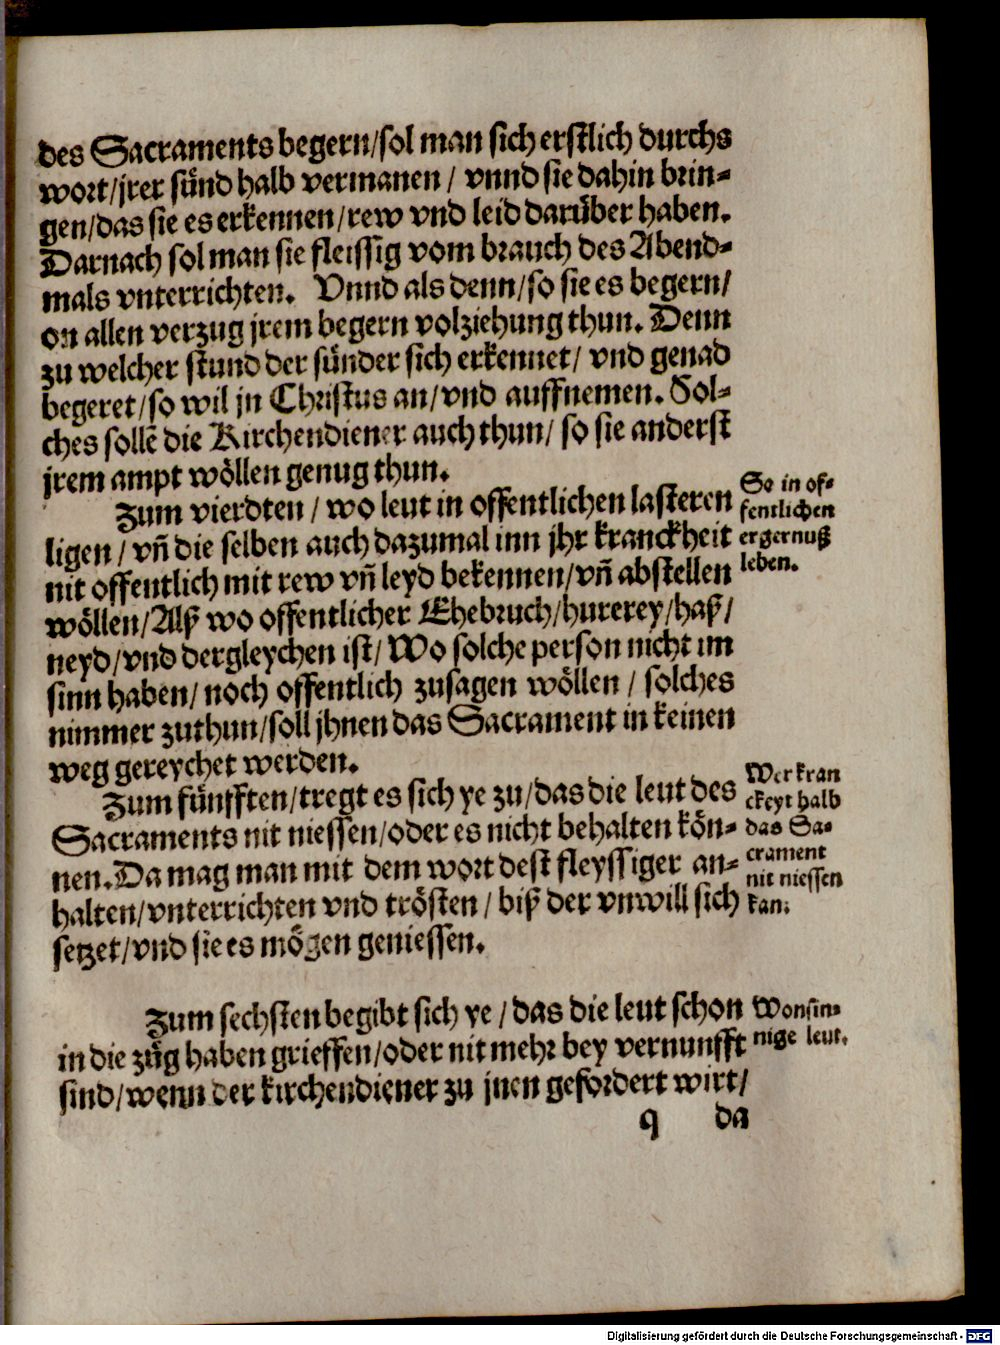 des Sacraments begern/sol man sich erstlich durchs
wort/jrer sünd halb vermanen / vnnd sie dahin brin-
gen/das sie es erkennen/rew vnd leid darüber haben.
Darnach sol man sie fleissig vom brauch des Abend-
mals vnterrichten. Vnnd als denn/so sie es begern/
on allen verzug jrem begern volziehung thun. Denn
zu welcher stund der sünder sich erkennet/ vnd genad
begeret/so wil jn Christus an/vnd auffnemen. Sol-
ches sollē die Kirchendiener auch thun/ so sie anderst
jrem ampt wöllen genug thun.
Zum vierdten / wo leut in offentlichen lasteren
ligen / vñ die selben auch dazumal inn jhr kranckheit
nit offentlich mit rew vñ leyd bekennen/vñ abstellen
wöllen/Alß wo offentlicher Ehebruch/hurerey/haß/
neyd/vnd dergleychen ist/ Wo solche person nicht im
sinn haben/ noch offentlich zusagen wöllen / solches
nimmer zuthun/soll jhnen das Sacrament in keinen
weg gereychet werden.
So in of-
fentlichen
ergernuß
leben.
Zum fünfften/tregt es sich ye zu/das die leut des
Sacraments nit niessen/oder es nicht behalten kön-
nen.Da mag man mit dem wort dest fleyssiger an-
halten/vnterrichten vnd trösten / biß der vnwill sich
setzet/vnd sie es mögen geniessen.
Wer kran
ckeyt halb
das Sa-
crament
nit niessen
kan.
Zum sechsten begibt sich ye / das die leut schon
in die züg haben grieffen/oder nit mehr bey vernunfft
sind/wenn der kirchendiener zu jnen gefordert wirt/
Wonsin-
nige leut.
q da
Digitalisierung gefördert durch die Deutsche Forschungsgemeinschaft - DFG